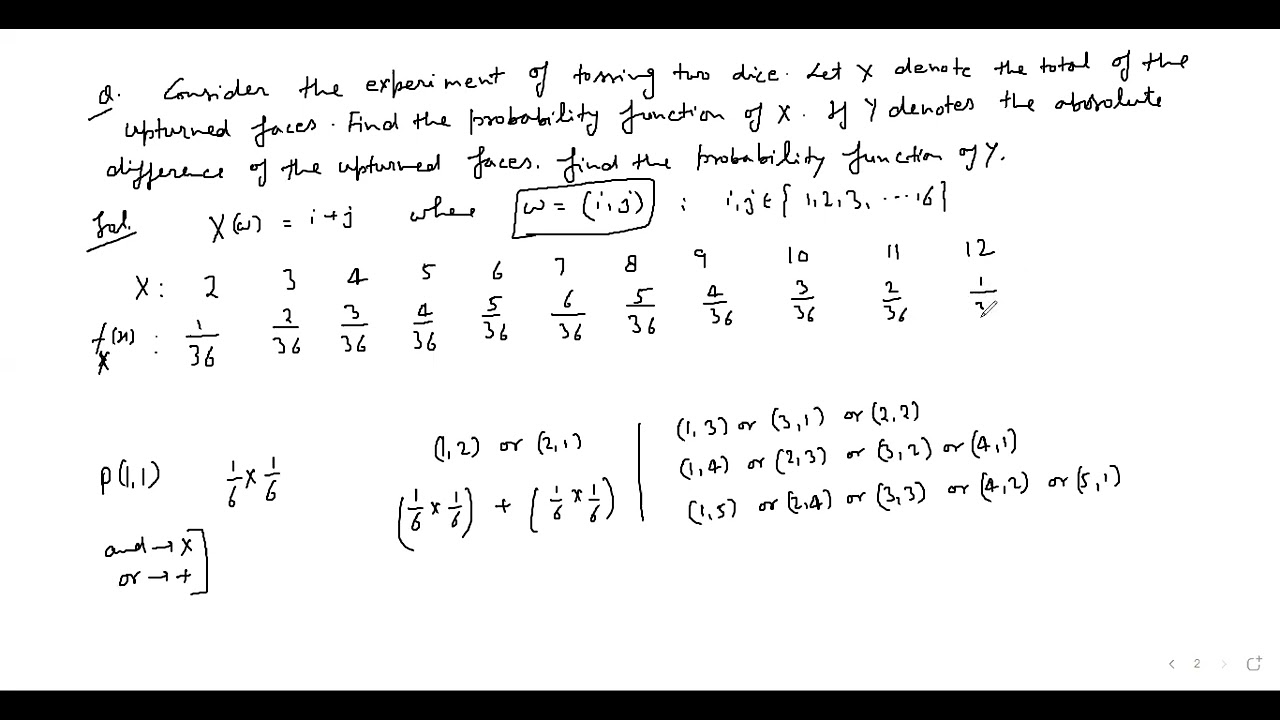 Q. Consider the experiment of tossing two dice. Let X denote the total of the
upturned faces. Find the probability function of X. If Y denotes the absolute
difference of the upturned faces. Find the probability function of Y.
Sol. X(ω) = i+j where ω = (i,j) : i,j ∈ { 1,2,3, ...,6}
X: 2 3 4 5 6 7 8 9 10 11 12
f_X(x) : 1/36 2/36 3/36 4/36 5/36 6/36 5/36 4/36 3/36 2/36 1/3
P(1,1) 1/6 × 1/6
and → ×
or → +
(1,2) or (2,1)
(1/6 × 1/6) + (1/6 × 1/6)
(1,3) or (3,1) or (2,2)
(1,4) or (2,3) or (3,2) or (4,1)
(1,5) or (2,4) or (3,3) or (4,2) or (5,1)
2